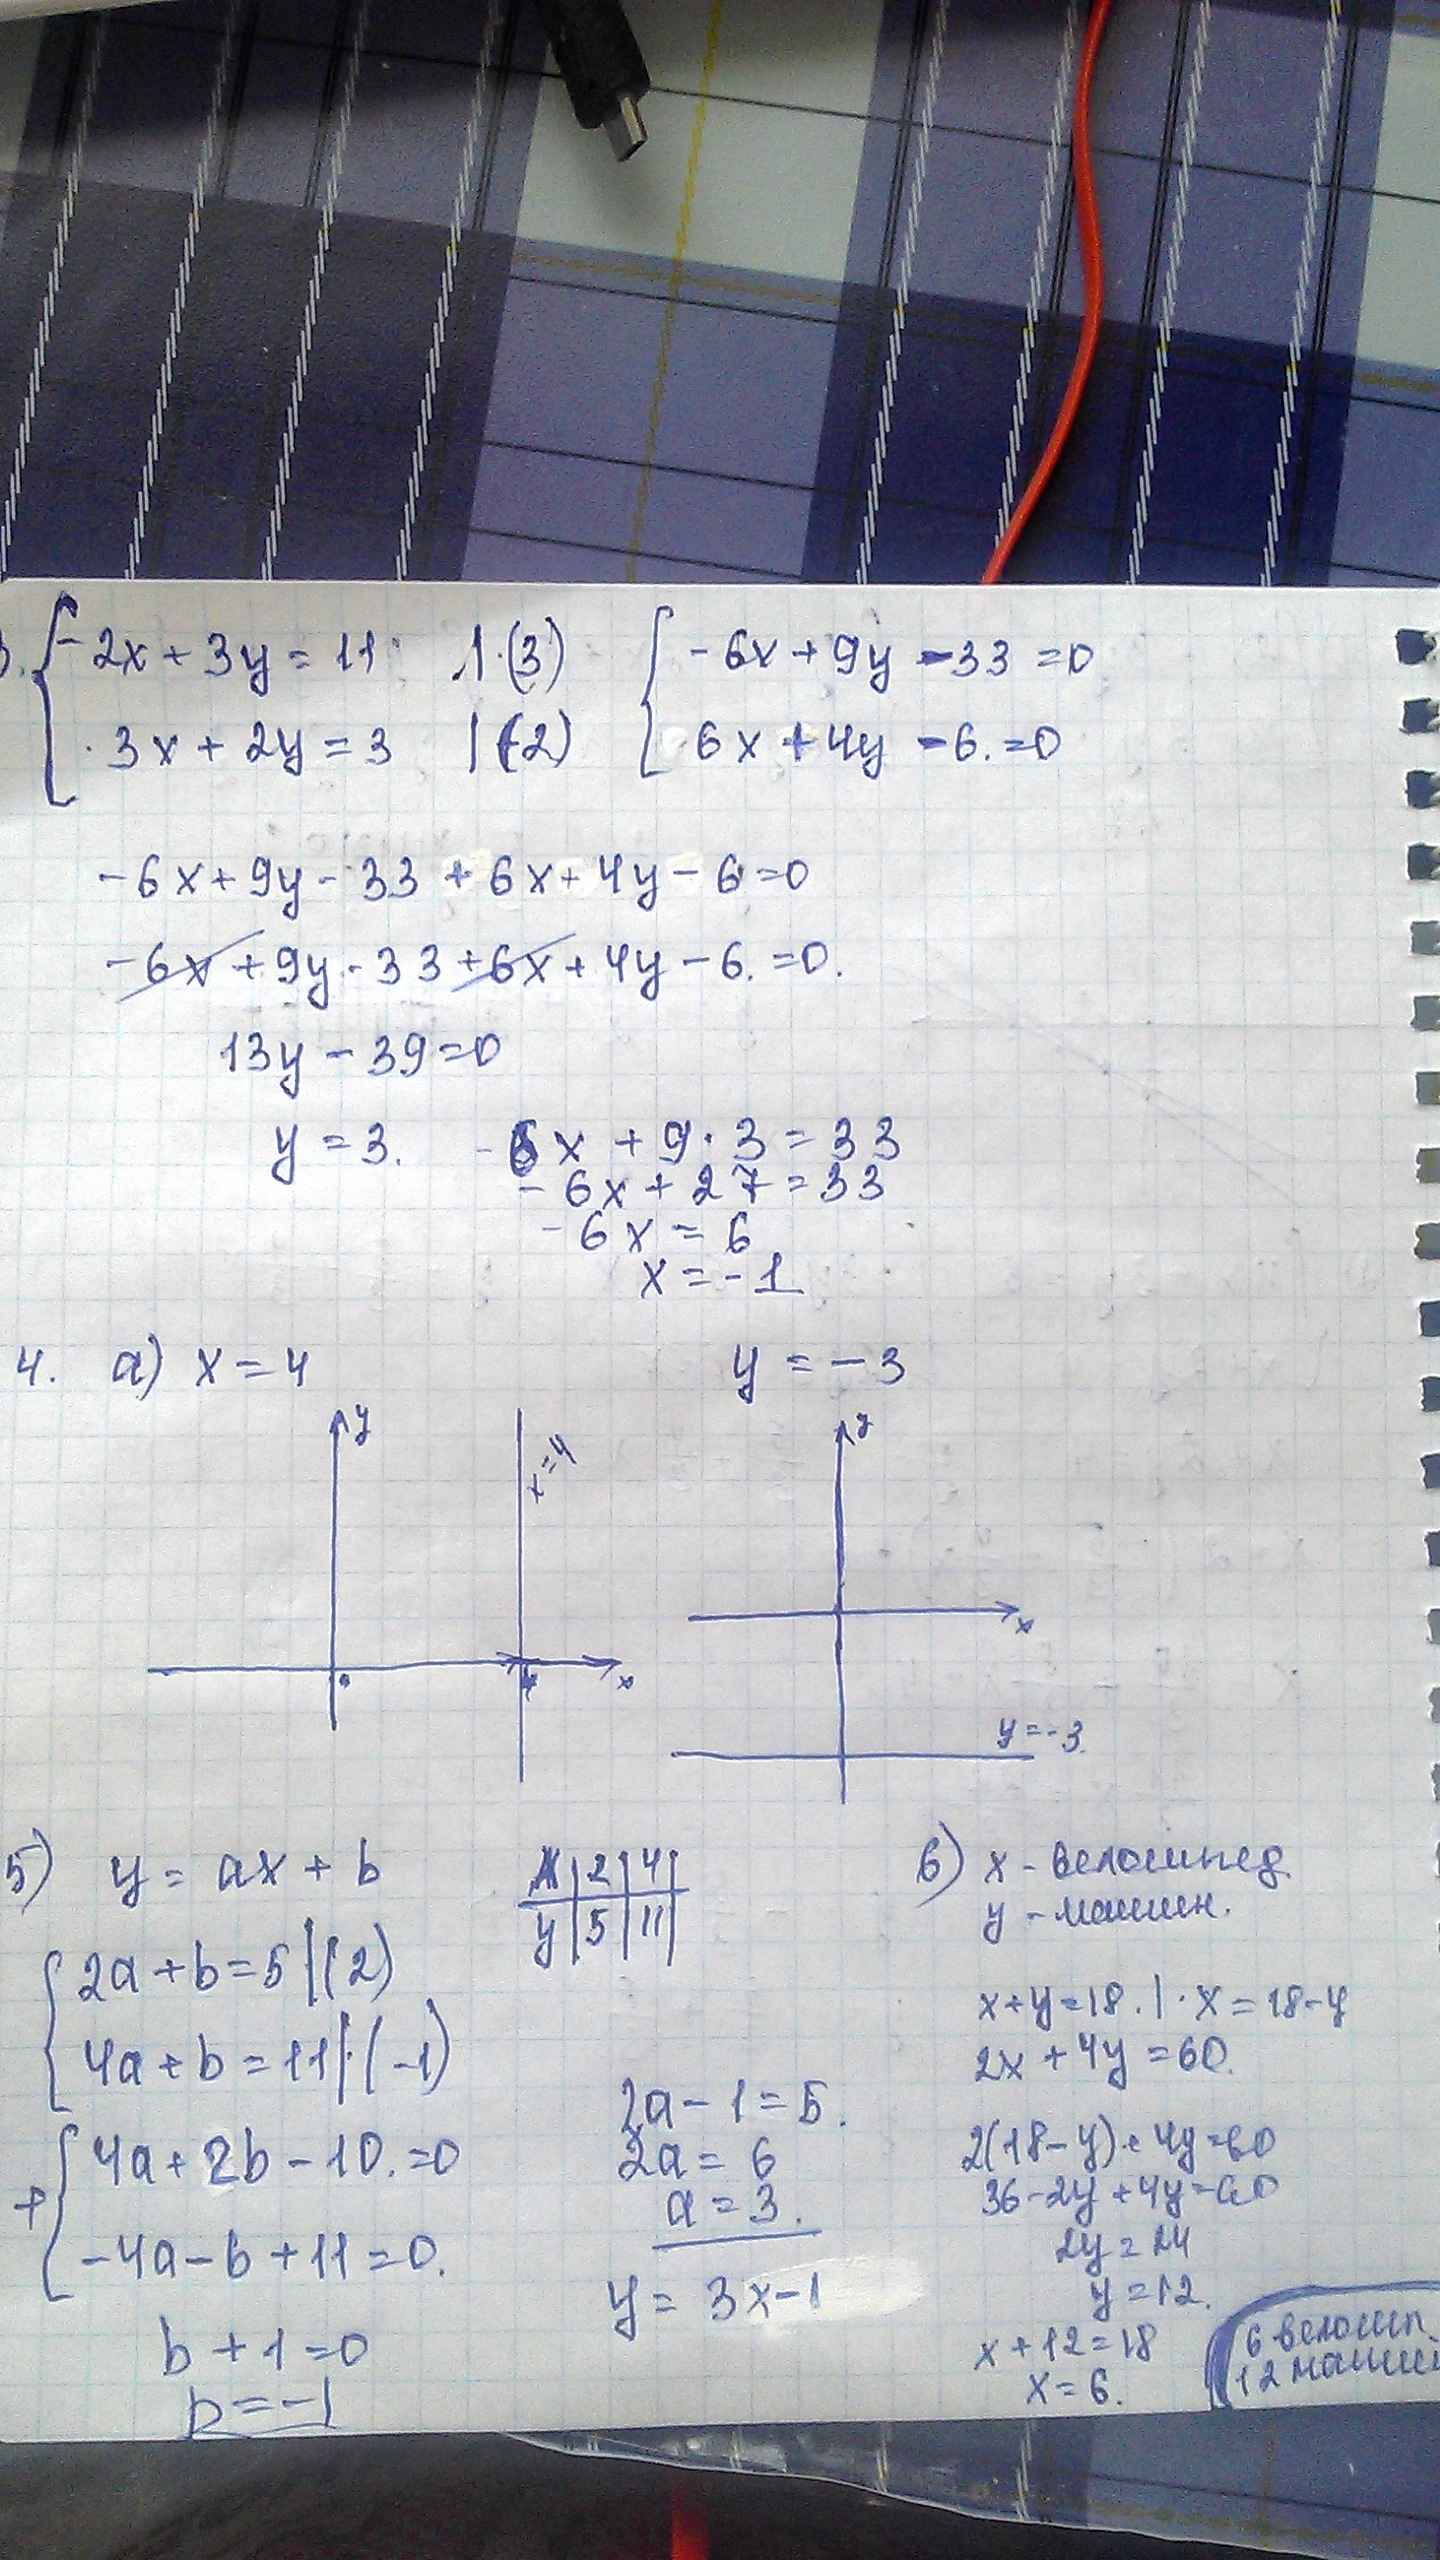 3. { -2x + 3y = 11 | · (3)   { -6x + 9y - 33 = 0
3x + 2y = 3 | (2)   6x + 4y - 6. = 0
-6x + 9y - 33 + 6x + 4y - 6 = 0
-6x + 9y - 33 + 6x + 4y - 6. = 0.
13y - 39 = 0
y = 3.   -6x + 9 · 3 = 33
-6x + 27 = 33
-6x = 6
x = -1
4. а) x = 4   y = -3
y   x = 4   x
y   x   y = -3.
5) y = ax + b
x | 2 | 4 |
y | 5 | 11 |
{ 2a + b = 5 | (2)
4a + b = 11 | · (-1)
+ { 4a + 2b - 10. = 0
-4a - b + 11 = 0.
b + 1 = 0
b = -1
2a - 1 = 5.
2a = 6
a = 3.
y = 3x - 1
6) x - велосипед.
y - машин.
x + y = 18. | · x = 18 - y
2x + 4y = 60.
2(18 - y) + 4y = 60
36 - 2y + 4y = 60
2y = 24
y = 12.
x + 12 = 18
x = 6.
6 велосип.
12 машин